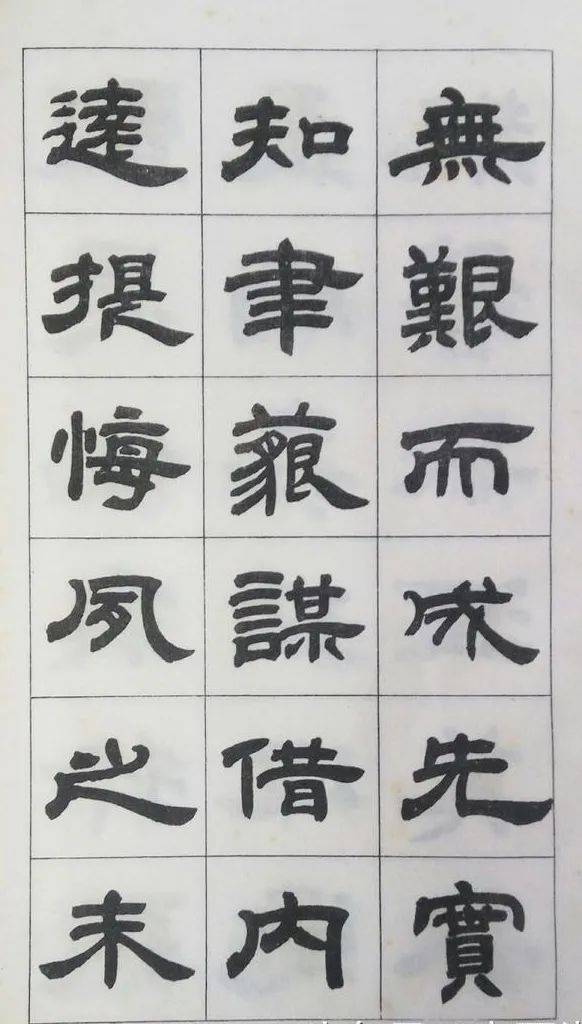 無艱而成先實
知聿藐謀借内
達提悔夙之未